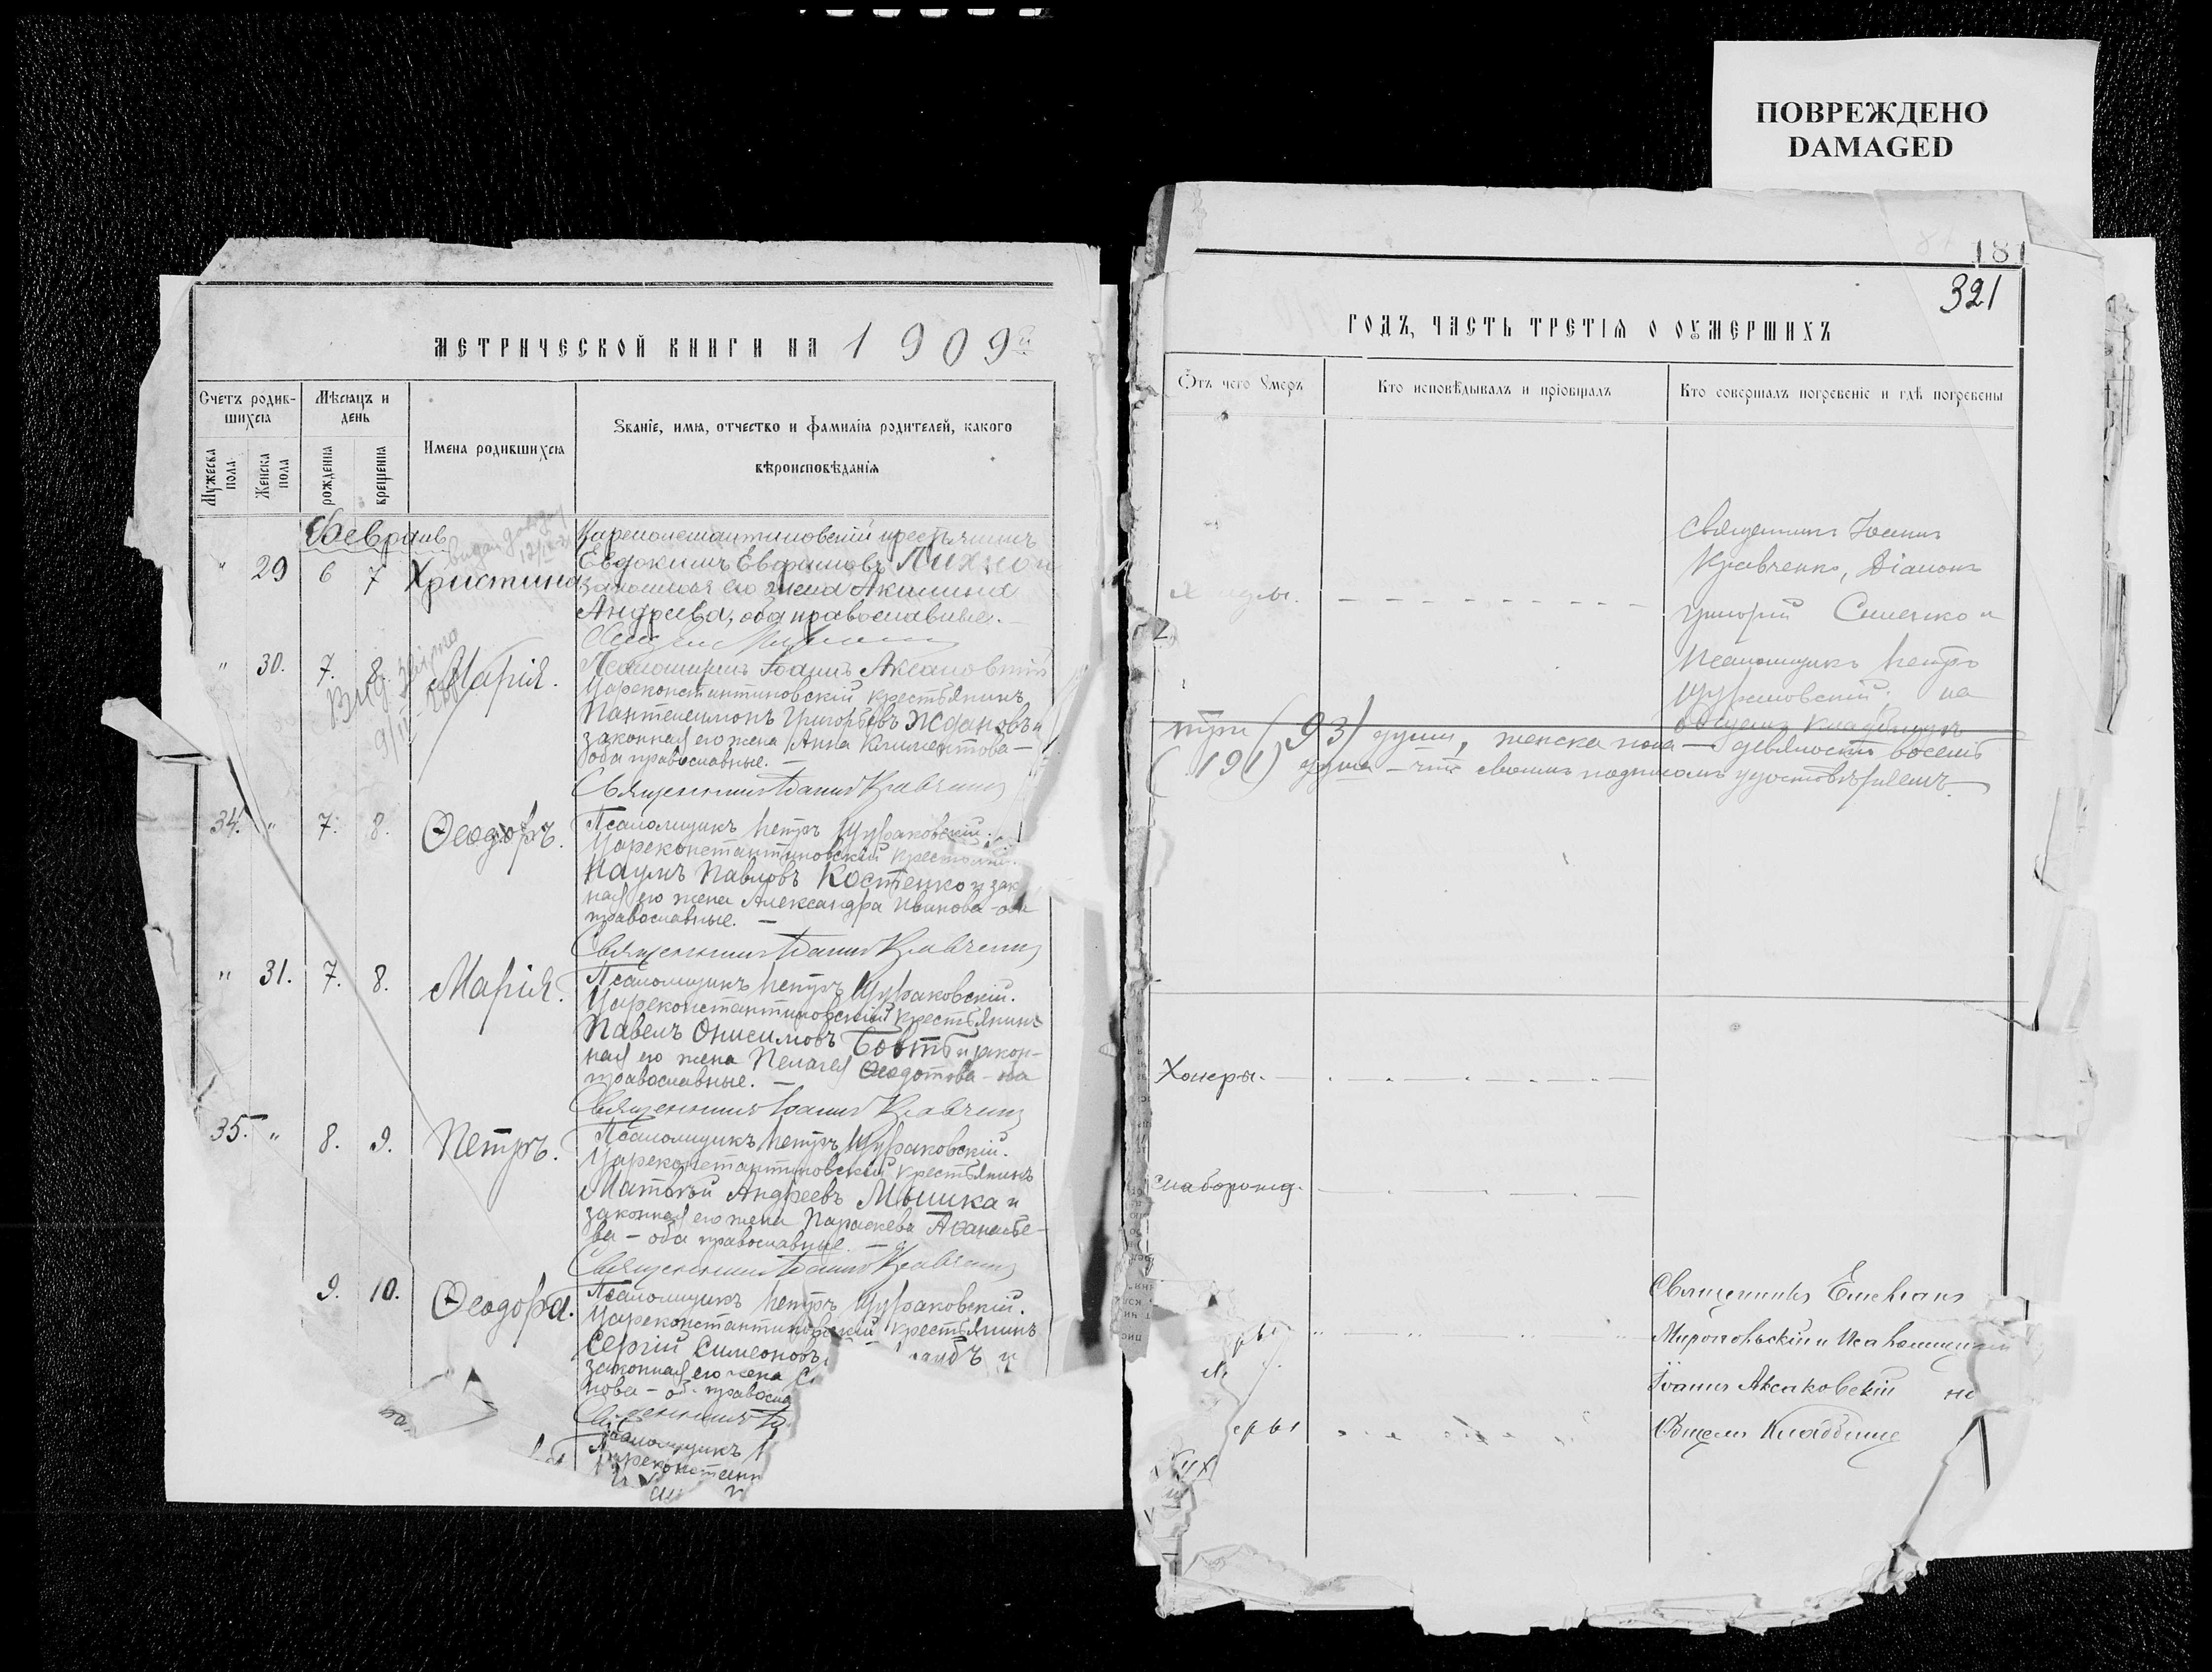 ПОВРЕЖДЕНО
DAMAGED
МЕТРИЧЕСКОЙ КНИГИ НА 1909й
Счетъ родив-
шихсѧ
Мѣсѧцъ и
день
Имена родившихсѧ
Званіе, имѧ, отчество и фамиліѧ родителей, какого
вѣроисповѣданіѧ
Мужеска
пола
Женска
пола
рожденіѧ
крещеніѧ
Февраль
" 29 6 7 Христина
Цареконстантиновскій крестьянинъ
Евдокимъ Евфимовъ
законная его жена Акилина
Андреева, оба православные.
" 30. 7. 8. Марія.
Псаломщикъ Іоаннъ Аксаковскій
Цареконстантиновскій крестьянинъ
Пантелеимонъ Григорьевъ Ждановъ и
законная его жена Анна Климентова —
оба православные. —
Священникъ Іоаннъ Кравченко
34. " 7. 8. Ѳеодоръ.
Псаломщикъ Петръ Щураковскій.
Цареконстантиновскій крестьянин
Наумъ Павловъ Костенко и зак
ная его жена Александра Иванова - оба
православные. —
Священникъ Іоаннъ Кравченко
" 31. 7. 8. Марія.
Псаломщикъ Петръ Щураковскій.
Цареконстантиновскій крестьянинъ
Павелъ Онисимовъ Бовтъ и закон-
ная его жена Пелагея Ѳеодотова - оба
православные. —
Священникъ Іоаннъ Кравченко
35. " 8. 9. Петръ.
Псаломщикъ Петръ Щураковскій.
Цареконстантиновскій крестьянинъ
Матѳей Андреевъ Мышка и
законная его жена Параскева Аѳанасье-
ва — оба православные. —
Священникъ Іоаннъ Кравченко
9. 10. Ѳеодора.
Псаломщикъ Петръ Щураковскій.
Цареконстантиновскій крестьянинъ
Сергій Симеоновъ и
законная его жена
нова — об. правосла
Псаломщикъ
181
321
ГОДЪ, ЧАСТЬ ТРЕТІѦ О ОУМЕРШИХЪ
Ѿтъ чего Умеръ
Кто исповѣдывалъ и пріобщалъ
Кто совершалъ погребеніе и гдѣ погребены
Священникъ Іоаннъ
Кравченко, Діаконъ
Григорій и
Псаломщикъ Петръ
Щураковскій; на
общемъ кладбищѣ
три (93) души, женска пола — девяносто восемь
(191) душа — что своимъ подписомъ удостовѣряемъ.
Холеры.
слаборожд.
Священникъ Емеліанъ
Миропольскій и Псаломщикъ
Іоаннъ Аксаковскій на
Общемъ Кладбище
ры
еры